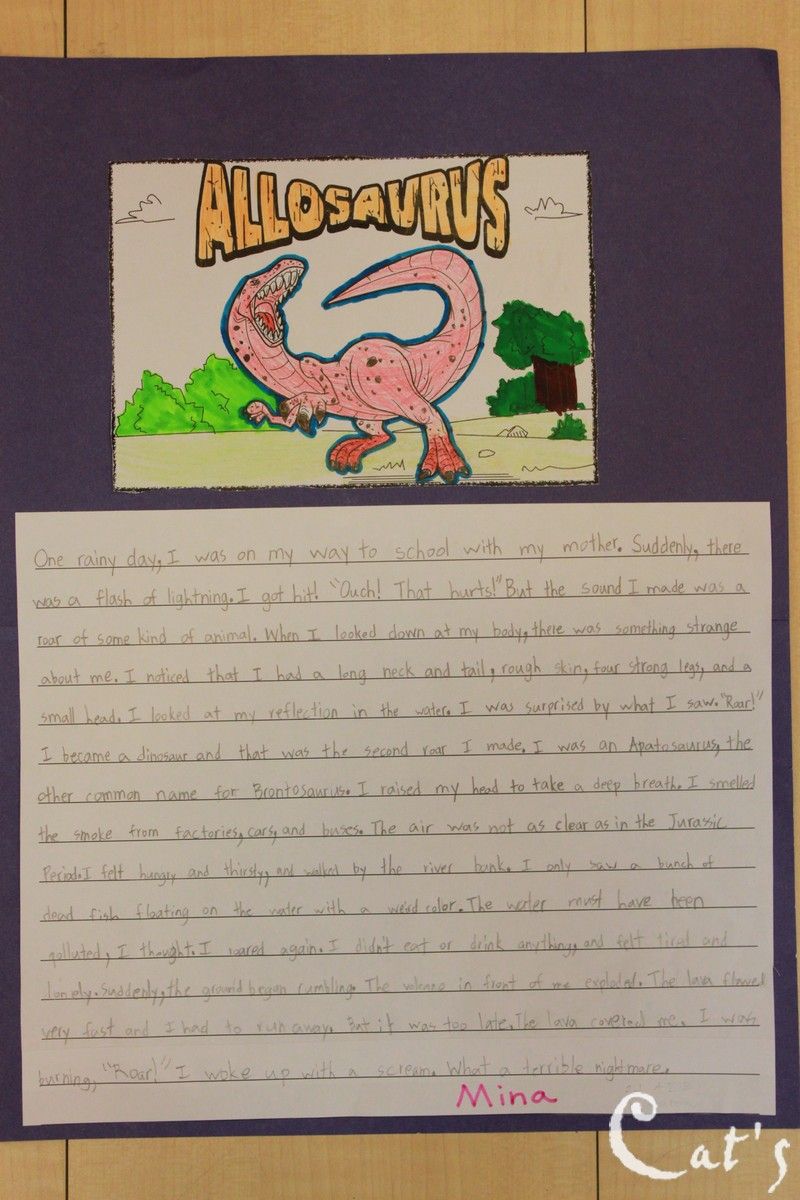 ALLOSAURUS
One rainy day, I was on my way to school with my mother. Suddenly, there
was a flash of lightning. I got hit! "Ouch! That hurts!" But the sound I made was a
roar of some kind of animal. When I looked down at my body, there was something strange
about me. I noticed that I had a long neck and tail, rough skin, four strong legs, and a
small head. I looked at my reflection in the water. I was surprised by what I saw. "Roar!"
I became a dinosaur and that was the second roar I made. I was an Apatosaurus, the
other common name for Brontosaurus. I raised my head to take a deep breath. I smelled
the smoke from factories, cars, and buses. The air was not as clear as in the Jurassic
Period. I felt hungry and thirsty, and walked by the river bank. I only saw a bunch of
dead fish floating on the water with a weird color. The water must have been
polluted, I thought. I roared again. I didn't eat or drink anything, and felt tired and
lonely. Suddenly, the ground began rumbling. The volcano in front of me exploded. The lava flowed
very fast and I had to run away. But it was too late. The lava covered me. I was
burning, "Roar!" I woke up with a scream. What a terrible nightmare.
Mina
Cat's